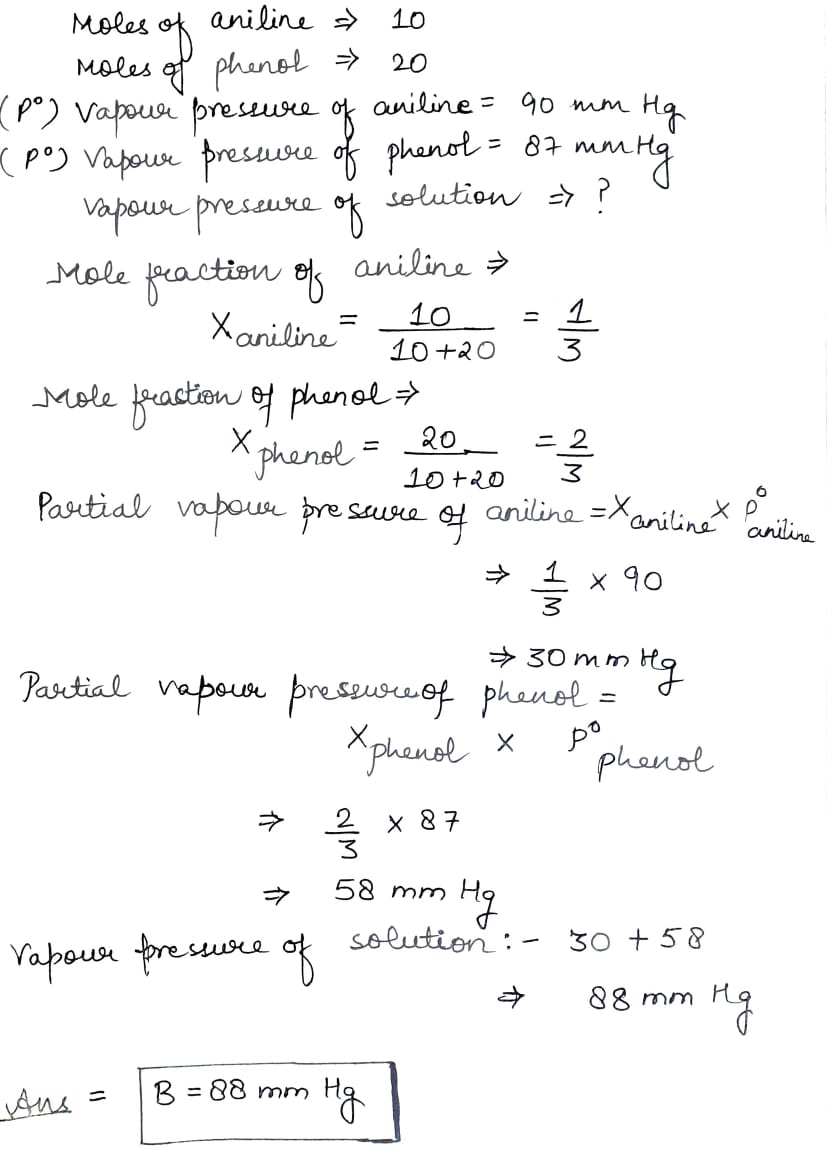 Moles of aniline ⇒ 10
Moles of phenol ⇒ 20
(P°) Vapour pressure of aniline = 90 mm Hg
(P°) Vapour pressure of phenol = 87 mm Hg
Vapour pressure of solution ⇒ ?
Mole fraction of aniline ⇒
X aniline = 10/(10+20) = 1/3
Mole fraction of phenol ⇒
X phenol = 20/(10+20) = 2/3
Partial vapour pressure of aniline = X aniline × P° aniline
⇒ 1/3 × 90
⇒ 30 mm Hg
Partial vapour pressure of phenol =
X phenol × P° phenol
⇒ 2/3 × 87
⇒ 58 mm Hg
Vapour pressure of solution :- 30 + 58
⇒ 88 mm Hg
Ans = B = 88 mm Hg